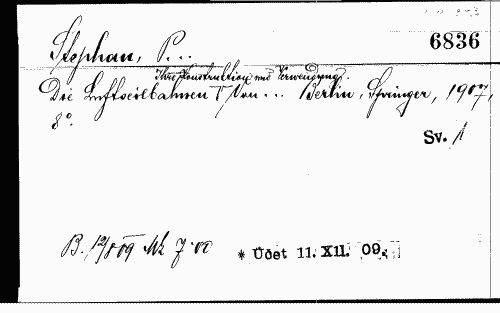 6836
Stephan, P...
Ihre Konstruktion und Verwendung.
Die Luftseilbahnen Von ... Berlin, Springer, 1907,
8°.
Sv. 1
B. 12/8 09 Mk 7·00 * Účet 11. XII. 09.